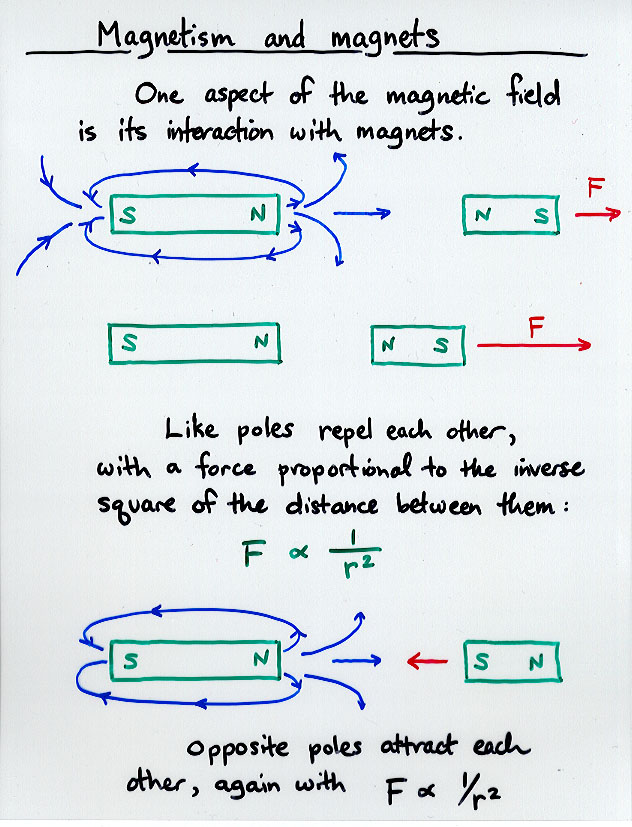 Magnetism and magnets
One aspect of the magnetic field
is its interaction with magnets.
S N N S F
S N N S F
Like poles repel each other,
with a force proportional to the inverse
square of the distance between them:
F ∝ 1/r²
S N S N
Opposite poles attract each
other, again with F ∝ 1/r²